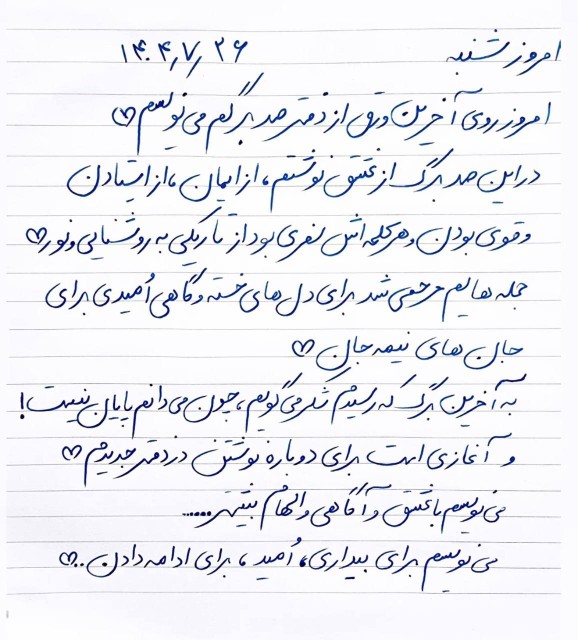 امروز شنبه ۱۴۰۴٫۷٫۲۶
امروز روی آخرین ورق از دفتر صد برگم می‌نویسم ♡
در این صد برگ از عشق نوشتم، از ایمان، از ایستادن
و قوی بودن و هر کلمه اش سفری بود از تاریکی به روشنایی و نور ♡
جمله هایم مرحمی شد برای دل های خسته و گاهی اُمیدی برای
جان های نیمه جان ♡
به آخرین برگ که رسیدم شکر می‌گویم، چون می‌دانم پایان نیست!
و آغازی است برای دوباره نوشتن در دفتر جدیدم ♡
می‌نویسم با عشق و آگاهی و الهام بیشتر......
می‌نویسم برای بیداری، اُمید، برای ادامه دادن..♡